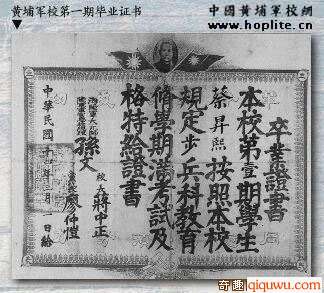 黄埔军校第一期毕业证书
中國黄埔軍校網
www.hoplite.cn
卒業證書
本校第壹期學生
蔡昇熙按照本校
規定步兵科教育
脩學期滿考試及
格特給證書
孫文
校長 蔣中正
廖仲愷
中華民國十
月 日給
奇趣 qiquwu.com